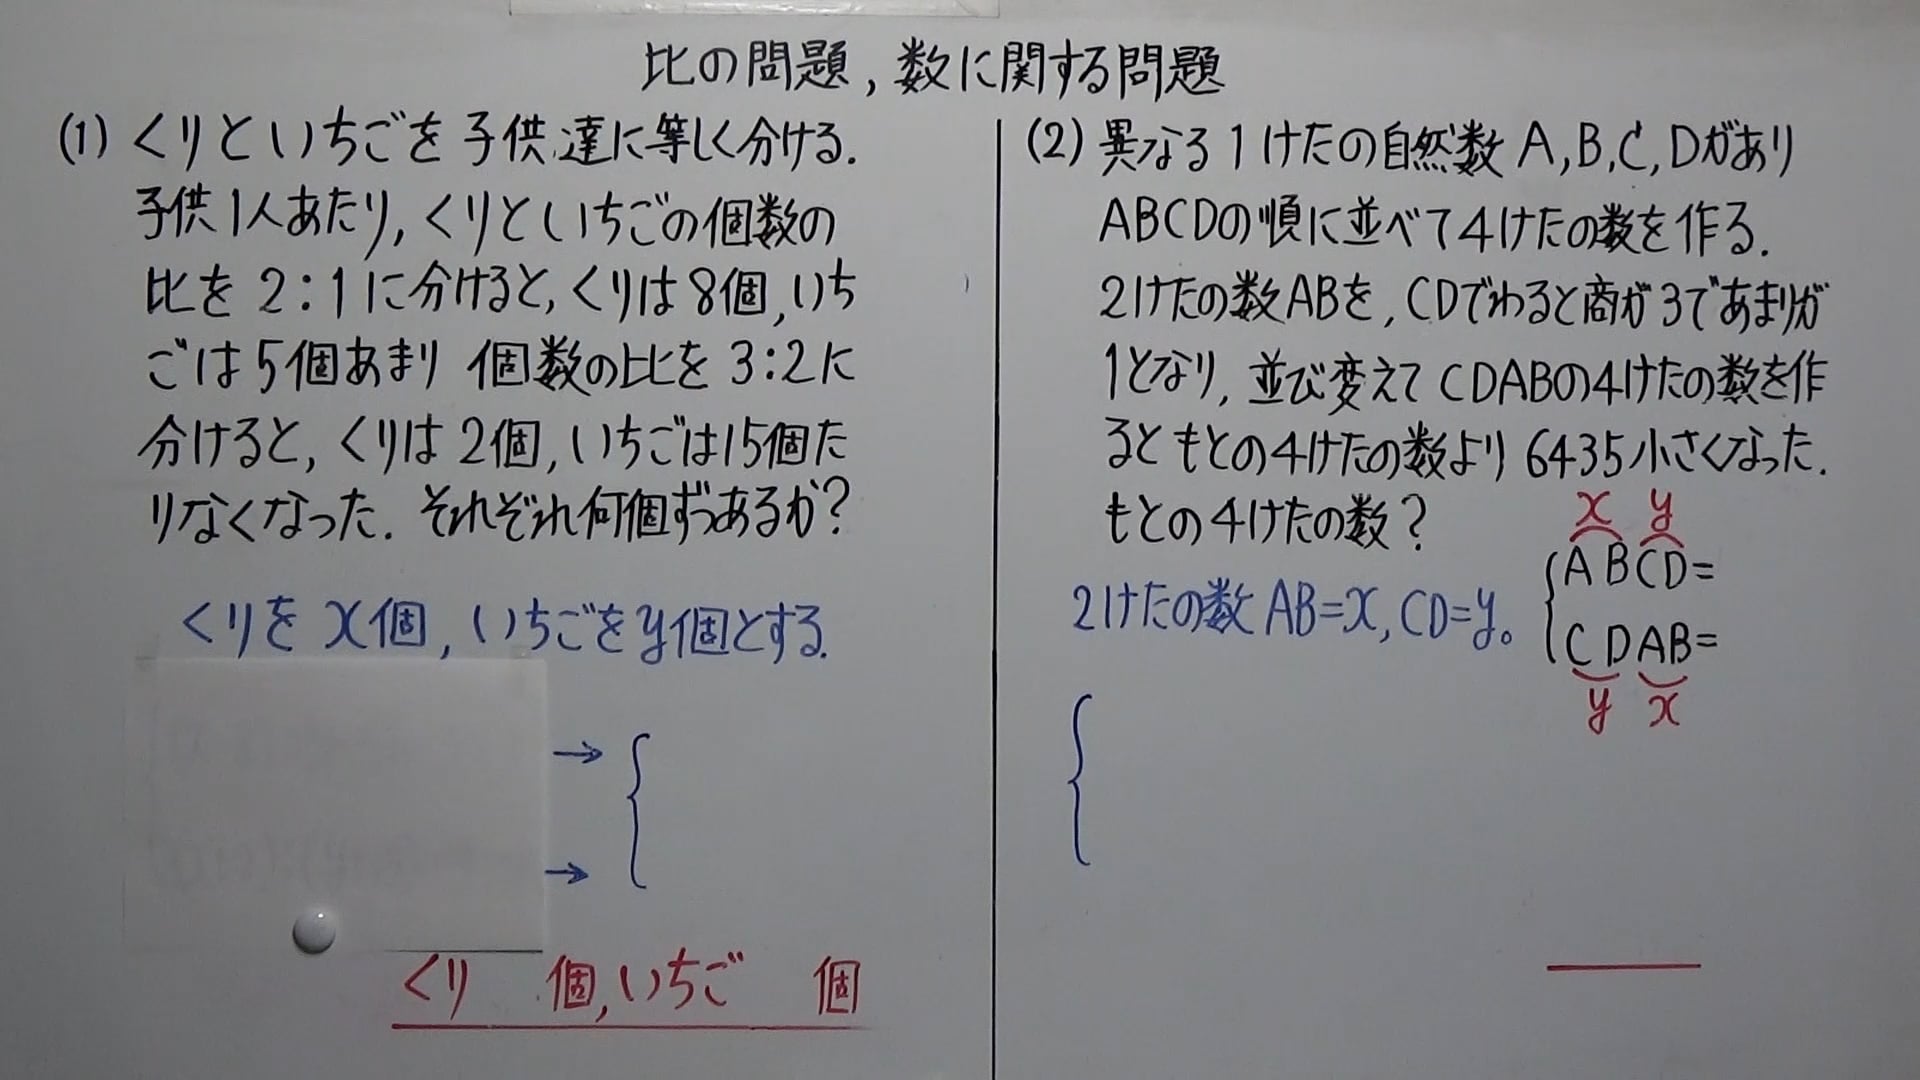 比の問題,数に関する問題
(1) くりといちごを子供達に等しく分ける.
子供1人あたり,くりといちごの個数の
比を2:1に分けると,くりは8個,いち
ごは5個あまり 個数の比を3:2に
分けると,くりは2個,いちごは15個た
りなくなった.それぞれ何個ずつあるか?
くりをx個,いちごをy個とする.
→
→
くり 個,いちご 個
(2) 異なる1けたの自然数A,B,C,Dがあり
ABCDの順に並べて4けたの数を作る.
2けたの数ABを,CDでわると商が3であまりが
1となり,並び変えてCDABの4けたの数を作
るともとの4けたの数より6435小さくなった.
もとの4けたの数?
2けたの数AB=x,CD=y。
x y
ABCD=
CDAB=
y x